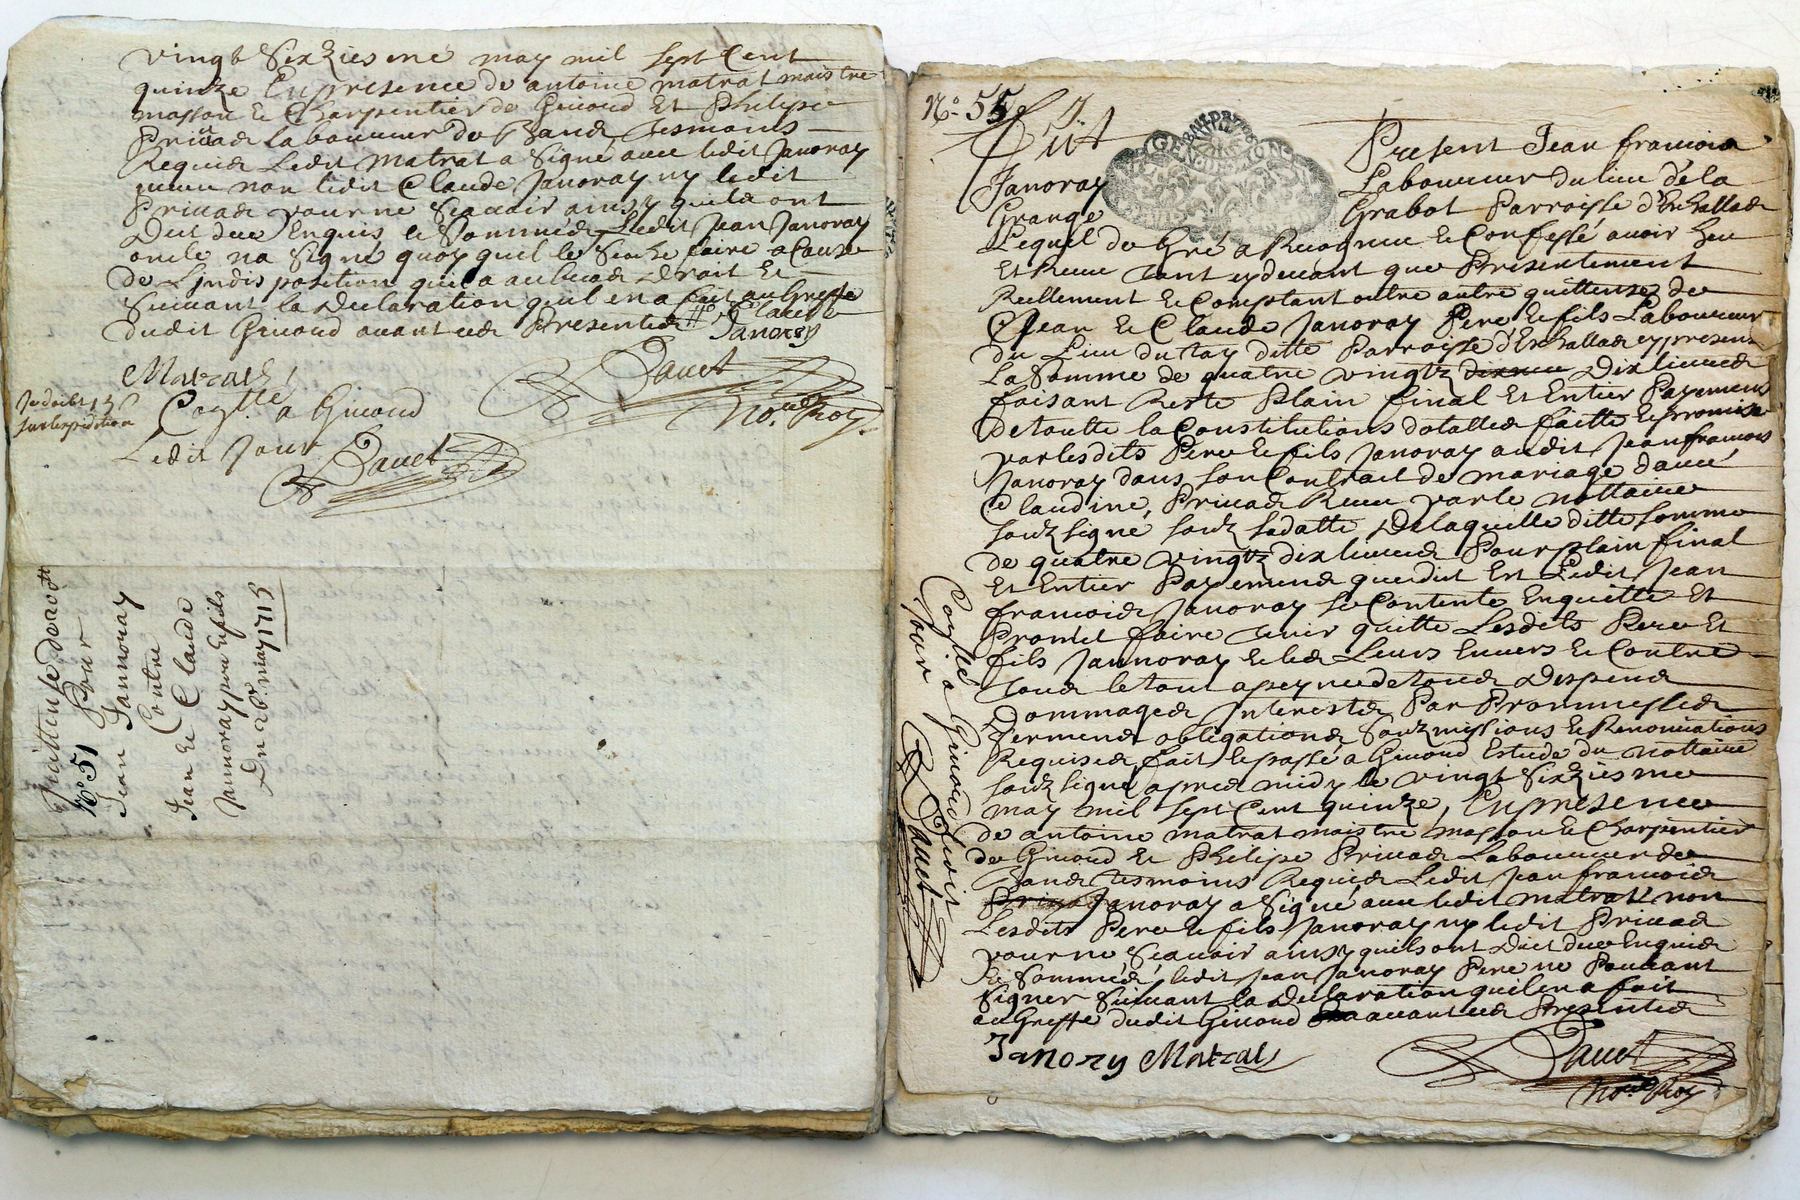 vingt Sixziesme may mil sept Cent
quinze En presence de antoine matrat maistre
masson & Charpentier de Giuoud Et Philipe
Priuad laboureur de tesmoins
Requid Ledit Matrat a Signé auec ledit Janoray
non ledit Claude Janoray ny ledit
Priuad pour ne Scauoir ainsy quils ont
Dict de ce Enquis & Sommés Ledit Jean Janoray
na Signé quoy quil le Sache faire a Cause
de Lindisposition quil a au bras Droit Et
Suiuant la Declaration quil en a fait au Greffe
dudit Giuoud auant ced Presented Claude
Janorey
Matrat
Dauet
No.re Roy
Coplle a Giuoud
Ledit Jour
Dauet
Quittense
No. 51 Pour
Jean Jannoray
Contre
Jean & Claude
Jannoray pere & fils
Du 26e. may 1715
No. 55
Fut Present Jean francois
Janoray Laboureur du lieu dela
Grange Grabot Parroysse d'
Lequel de Gré a Recognue & Confessé auoir heu
Et Receu tant cydeuant que Presentement
Reellement & Comptant outre autre quittense de
Jean & Claude Janoray Pere & fils Laboureur
du Lieu du tay ditte Parroysse
La Somme de quatre vingtz Dix liured
faisant Reste Plain final Et Entier Payement
De toutte la Constitutions dotalled faitte & promise
par lesdits Pere & fils Janoray audit Jean francois
Janoray dans Son Contrait de mariage d'auec
Claudine Priuad Receu par le nottaire
Soubzsigné soubz sa datte De laquelle ditte Somme
de quatre vingtz dix liured Pour plain final
Et Entier Payement que dit Est Ledit Jean
francois Janoray Se Contente Enquitte Et
Promet faire tenir quitte Lesdits Pere Et
fils Jannoray & les Leurs Enuers & Contre
toud le tout a peyne de toud Despend
Dommaged Interestd Par Promessed
Sermend obligationd Soubzmissions & Renontiations
Requised fait & passé a Giuoud Estude du nottaire
Soubzsigné apred midy le vingt Sixziesme
may mil sept Cent quinze, En presence
de antoine matrat maistre masson & Charpentier
de Giuoud Et Philipe Priuad Laboureur de
tesmoins Requid Ledit Jean francois
Janoray a Signé auec ledit matrat non
Lesdits Pere & fils Janoray ny ledit Priuad
pour ne Scauoir ainsy quils ont Dict de ce Enquid
& Sommés ledit Jean Janoray Pere ne Pouuant
Signer Suiuant la Declaration quil en a fait
au Greffe dudit Giuoud auant ced Presented
Janorey Matrat
Dauet
No.re Roy
Coplle a Giuoud Ledit
Jour Dauet